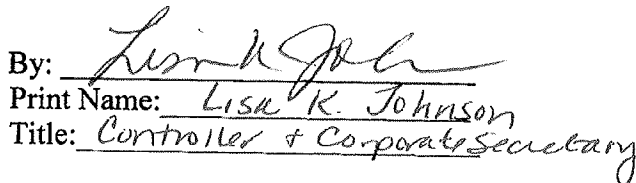 By: Lisa K. Joh
Print Name: Lisa K. Johnson
Title: Controller + Corporate Secretary